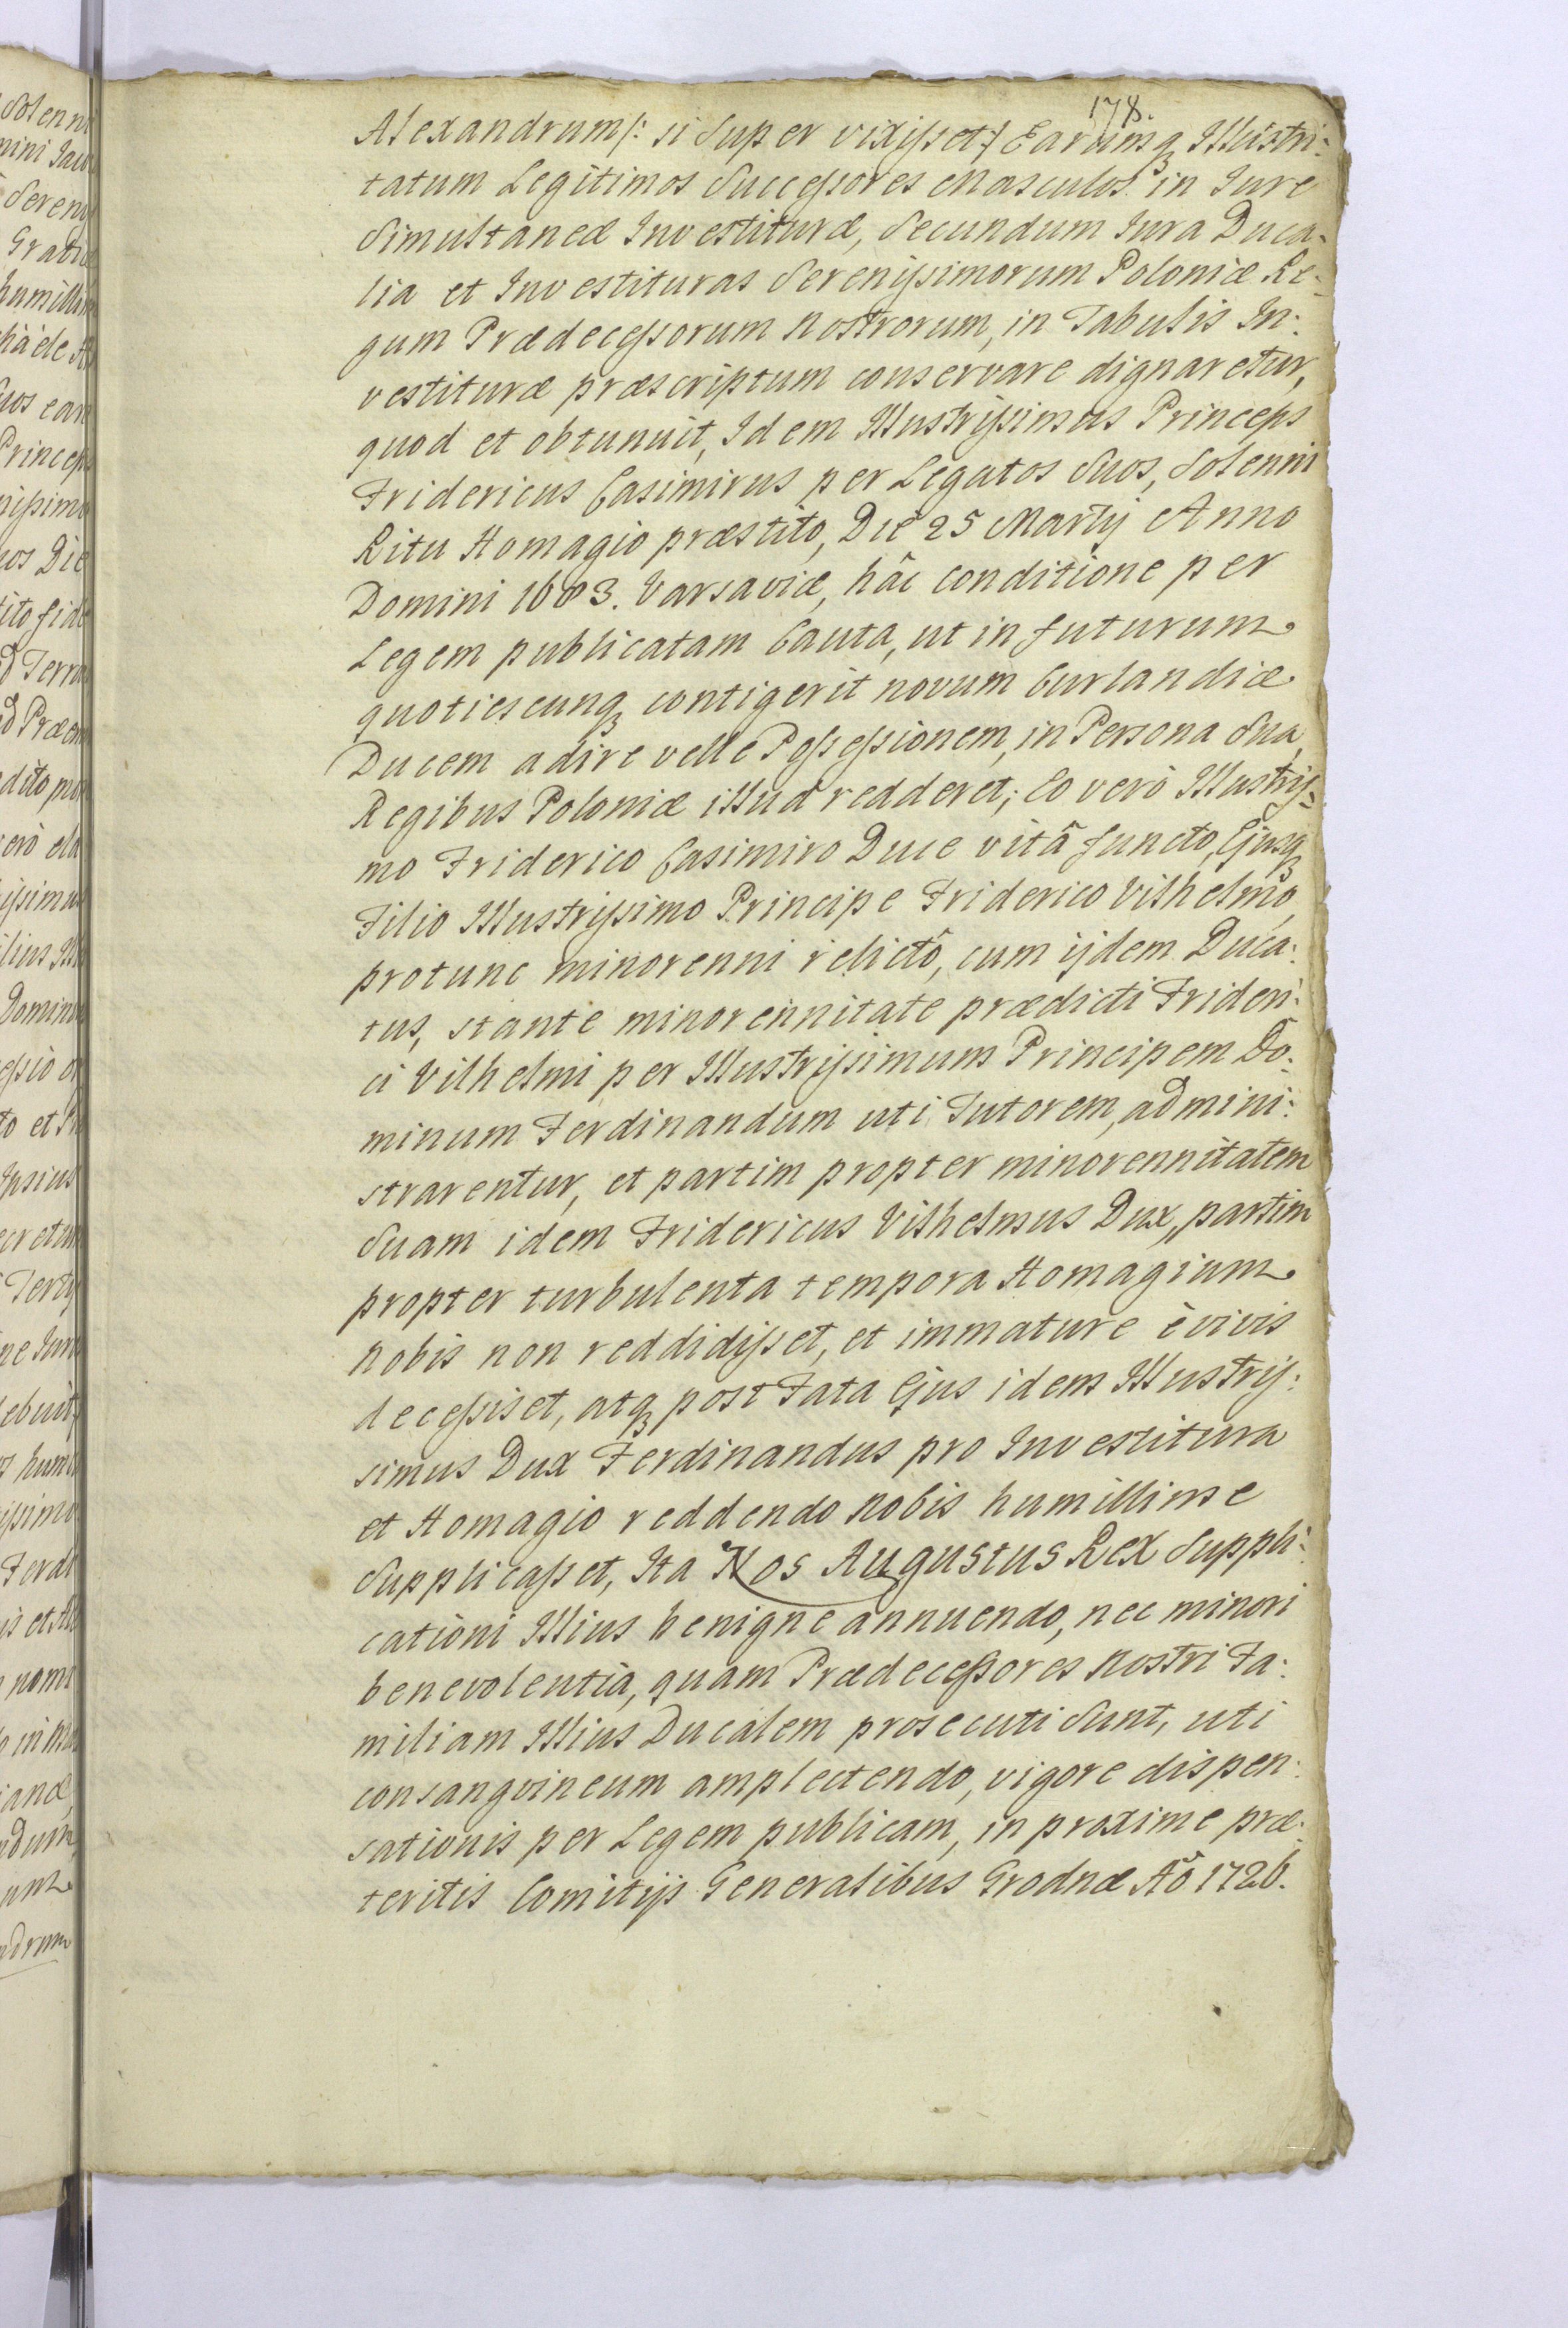 178.
Alexandrum /: si Super vixisset :/ Earumq Illustri:
tatum Legitimos Successores Masculos in Jure
Simultaneæ Investituræ, Secundum Jura Duca:
lia et Investituras Serenissimorum Poloniæ Re:
gum Prædecessorum Nostrorum, in Tabulis In:
vestituræ præscriptum conservare dignaretur,
quod et obtunuit, Idem Illustrissimus Princeps
Fridericus Casimirus per Legatos Suos, Solenni
Ritu Homagio præstito, Die 25 Martij Anno
Domini 1683. Varsaviæ, hâc conditione per
Legem publicatam Cauta, ut in futurum
quotiescunq contigerit novum Curlandiæ
Ducem adire velle Possessionem, in Persona Sua,
Regibus Poloniæ illud redderet; Eo verò Illustriss:
mo Friderico Casimiro Duce vitâ functo, Ejusq
Filio Illustrissimo Principe Friderico Vilhelmo,
protunc minorenni relictô, cum ijdem Duca:
tus, stante minorennitate prædicti Frideri:
ci Vilhelmi per Illustrissimum Principem Do:
minum Ferdinandum uti Tutorem, admini:
strarentur, et partim propter minorennitatem
Suam idem Fridericus Vilhelmus Dux, partim
propter turbulenta tempora Homagium
Nobis non reddidisset, et immature è vivis
decessiset, atq post Fata Ejus idem Illustris:
simus Dux Ferdinandus pro Investitura
et Homagio reddendo Nobis humillime
Supplicasset, Ita Nos Augustus Rex Suppli:
cationi Illius benigne annuendo, nec minori
benevolentia, quam Prædecessores Nostri Fa:
miliam Illius Ducalem prosecuti Sunt, uti
consangvineum amplectendo, vigore dispen:
sationis per Legem publicam, in proxime præ:
teritis Comitijs Generalibus Grodnæ Aō 1726.